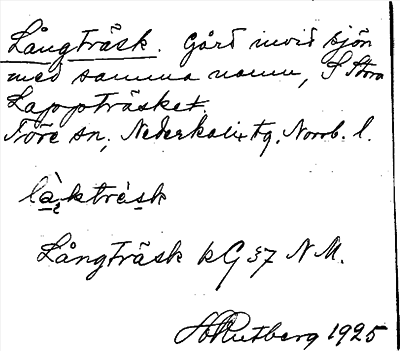 Långträsk. Gård invid sjön
med samma namn, S Stora
Lappträsket.
Töre sn, Nederkalix tg, Norrb. l.
Långträsk kG 37 N M.
Rutberg 1925